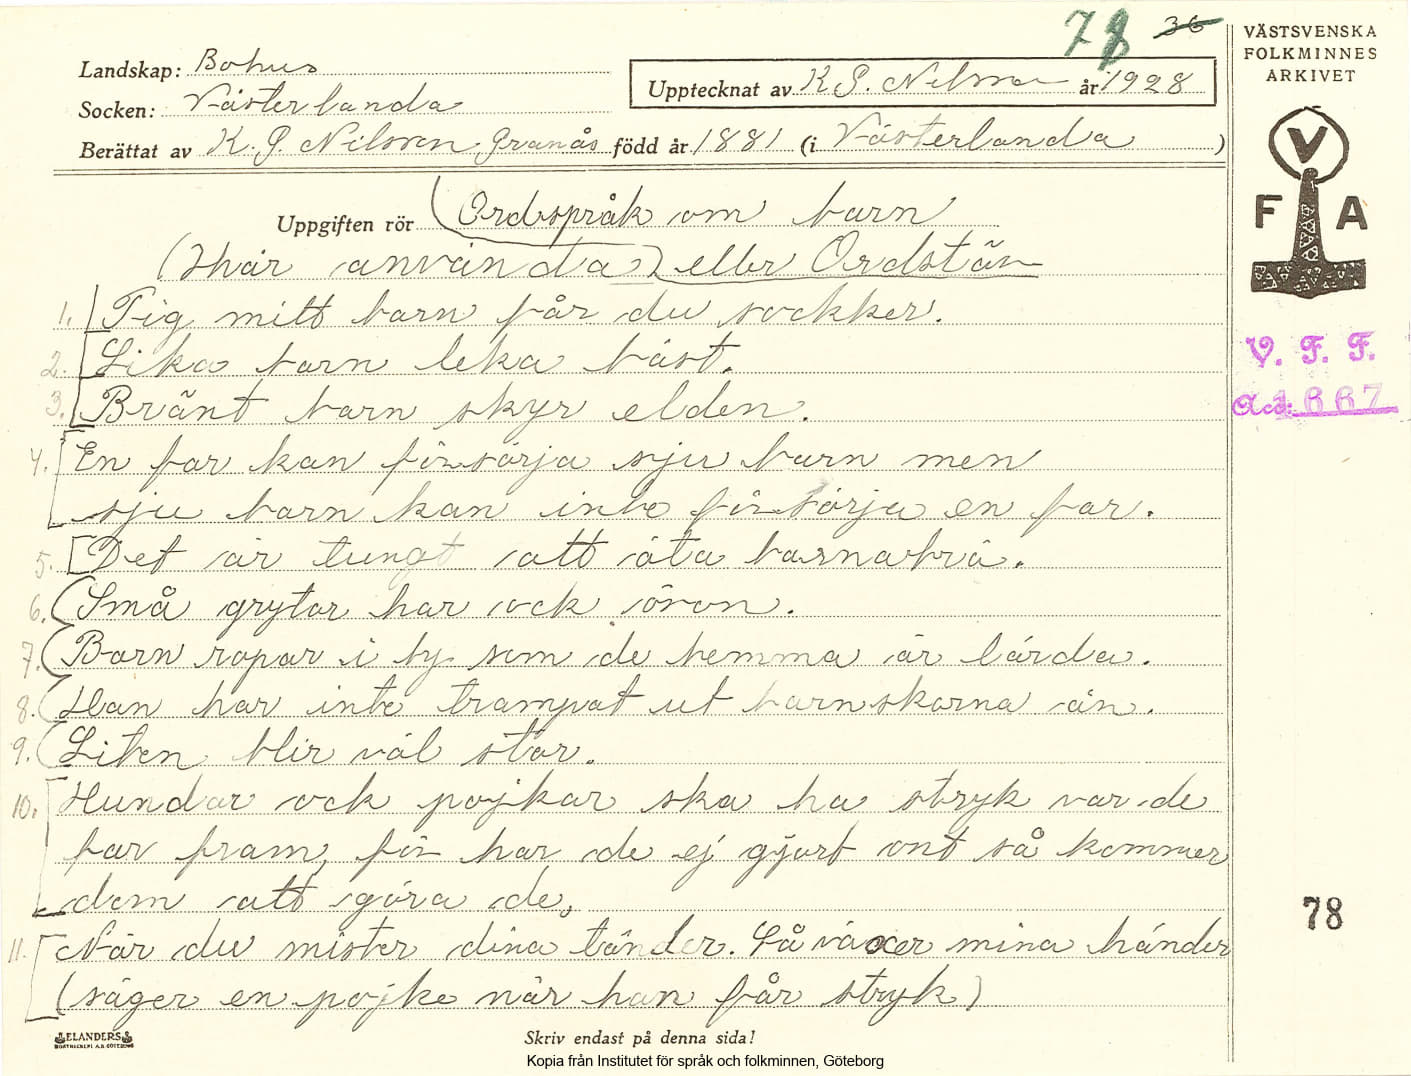 78 36
VÄSTSVENSKA
FOLKMINNES
ARKIVET
Landskap: Bohus
Upptecknat av K P. Nilsson år 1928
Socken: Västerlanda
Berättat av K. P. Nilsson Granås född år 1881 (i Västerlanda )
V
F A
Uppgiften rör Ordspråk om barn
(Här använda) eller Ordstäv
1. Tig mitt barn får du sockker.
2. Lika barn leka bäst.
3. Bränt barn skyr elden.
4. En far kan försörja sju barn men
sju barn kan inte försörja en far.
5. Det är tungt att äta barnabrö.
6. Små grytor har ock öron.
7. Barn ropar i by som de hemma är lärda.
8. Han har inte trampat ut barnskorna än.
9. Liten blir väl stor.
10. Hundar ock pojkar ska ha stryk var de
far fram, för har de ej gjort ont så kommer
dom att göra de,
11. När du mister dina tänder. Så växer mina händer
(säger en pojke när han får stryk)
V. F. F.
Acc: 1667
78
ELANDERS
BOKTRYCKERI A.B. GÖTEBORG
Skriv endast på denna sida!
Kopia från Institutet för språk och folkminnen, Göteborg